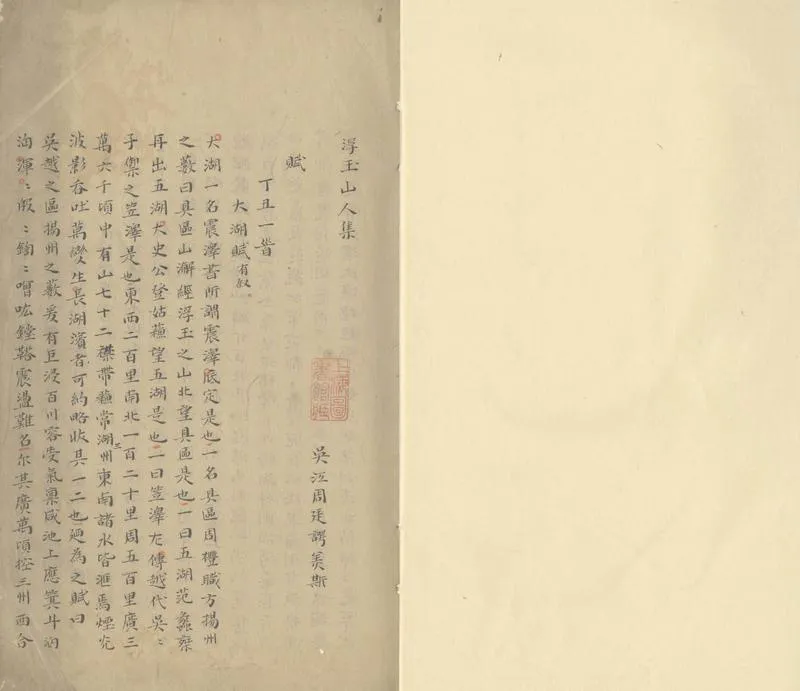 浮玉山人集
吳江周廷諤美斯
賦
丁丑一首
太湖賦有叙
太湖一名震澤書所謂震澤底定是也一名具區周禮職方揚州
之藪曰具區山海經浮玉之山北望具區是也一曰五湖范蠡棄
再出五湖太史公登姑蘇望五湖是也一曰笠澤左傳越代吳ミ
子禦之笠澤是也東西二百里南北一百二十里周五百里廣三
萬六千頃中有山七十二襟帶蘇常湖三州東南諸水皆滙焉煙光
波影吞吐萬變生長湖濱者可約略收其一二也廼為之賦曰
吳越之區揚州之藪爰有巨浸百川容受氣稟咸池上應箕斗
渾ミ ミ ミ 噌吰鏜鞳震盪難名尔其廣萬頃控三州西合